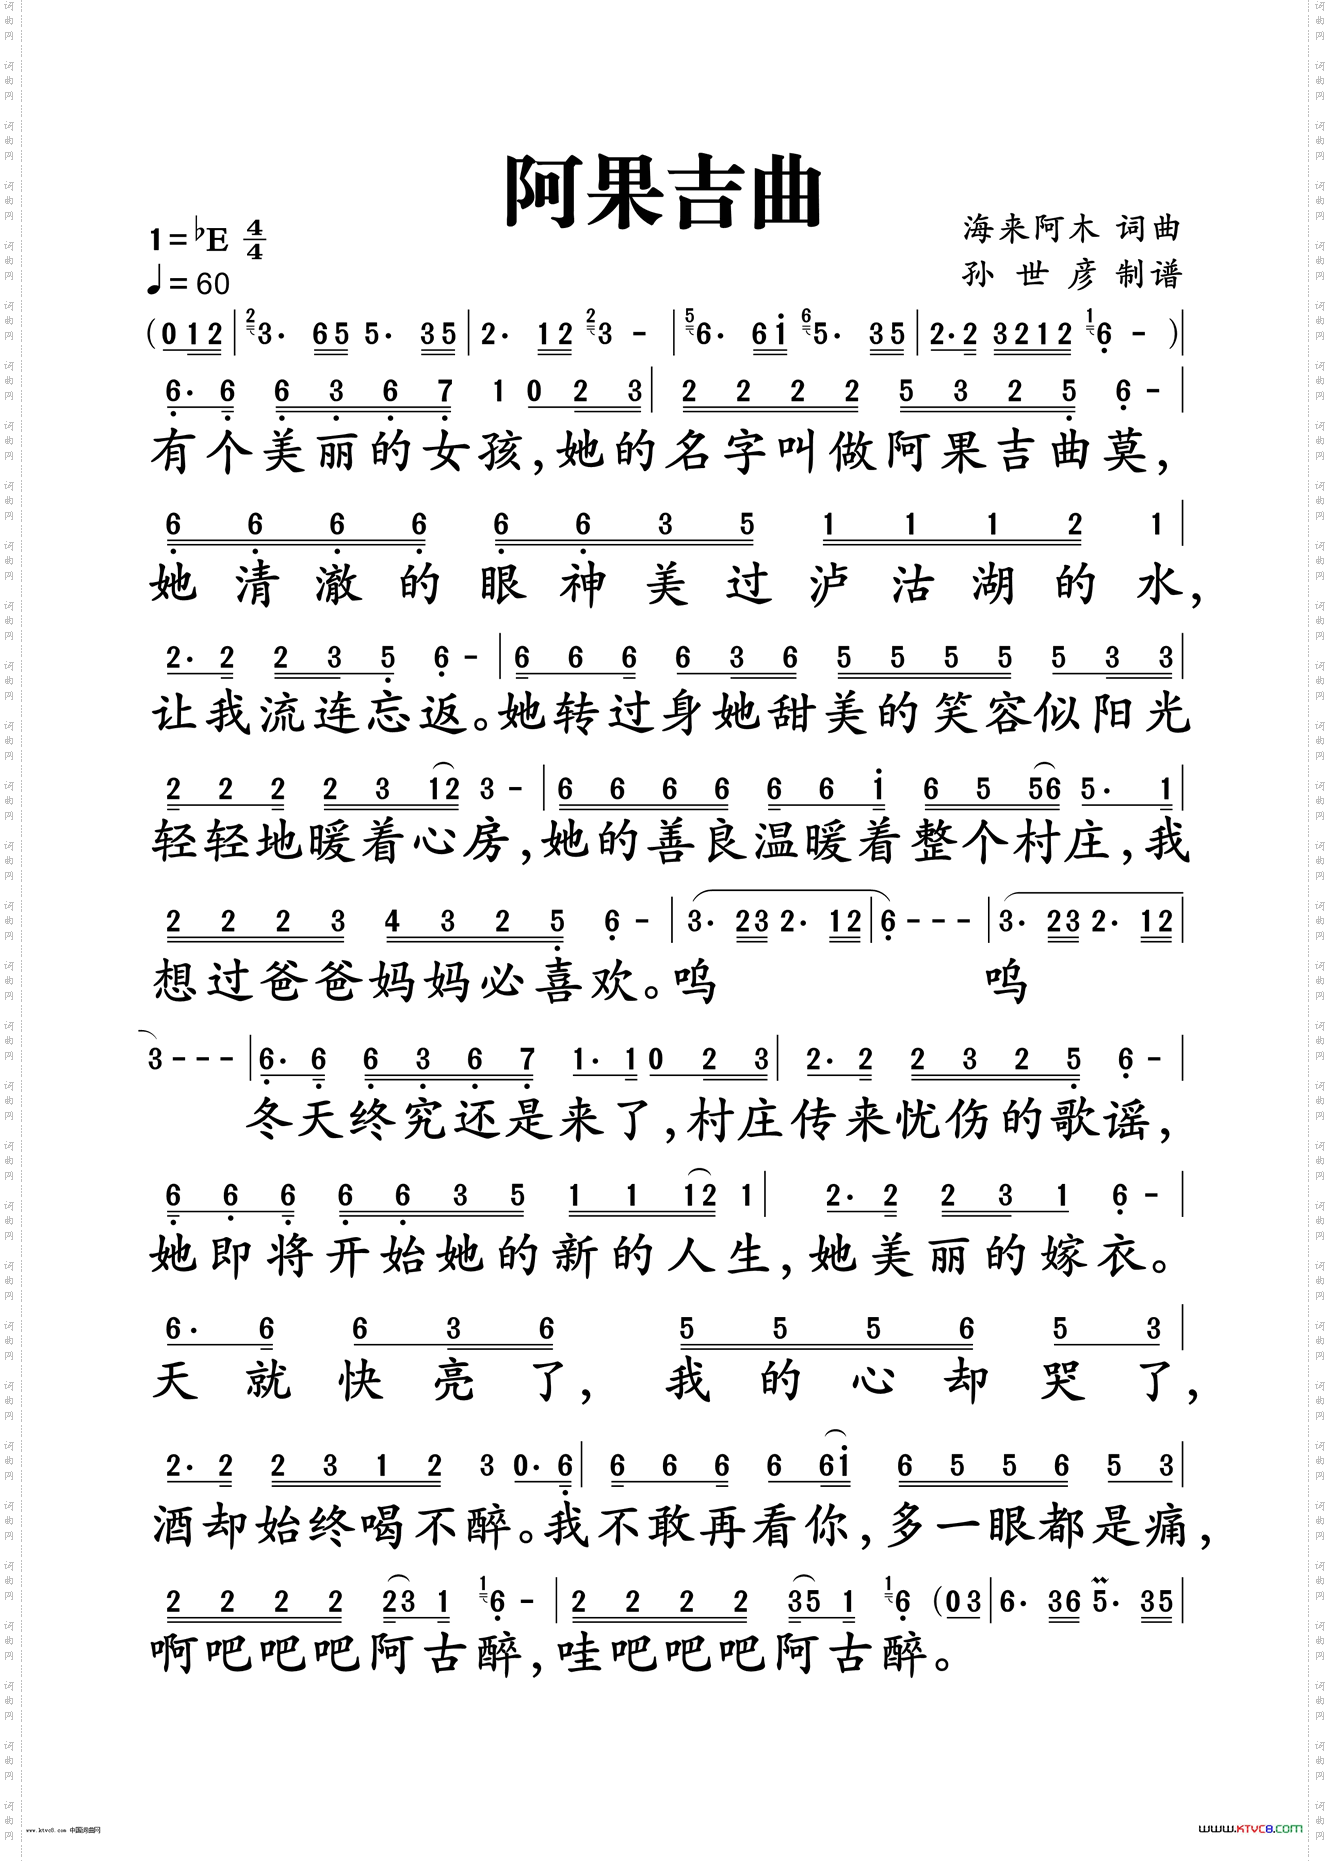 阿果吉曲
1=♭E 4/4
海来阿木 词曲
♩=60
孙世彦 制谱
(0 1 2 | 2 3· 6 5 5· 3 5 | 2· 1 2 2 3 - | 5 6· 6 1 6 5· 3 5 | 2· 2 3 2 1 2 1 6 - ) |
6· 6 6 3 6 7 1 0 2 3 | 2 2 2 2 5 3 2 5 6 - |
有个美丽的女孩,她的名字叫做阿果吉曲莫,
6 6 6 6 6 6 3 5 1 1 1 2 1 |
她清澈的眼神美过泸沽湖的水,
2· 2 2 3 5 6 - | 6 6 6 6 3 6 5 5 5 5 5 3 3 |
让我流连忘返。她转过身她甜美的笑容似阳光
2 2 2 2 3 1 2 3 - | 6 6 6 6 6 6 1 6 5 5 6 5· 1 |
轻轻地暖着心房,她的善良温暖着整个村庄,我
2 2 2 3 4 3 2 5 6 - | 3· 2 3 2· 1 2 | 6 - - - | 3· 2 3 2· 1 2 |
想过爸爸妈妈必喜欢。呜 呜
3 - - - | 6· 6 6 3 6 7 1· 1 0 2 3 | 2· 2 2 3 2 5 6 - |
冬天终究还是来了,村庄传来忧伤的歌谣,
6 6 6 6 6 3 5 1 1 1 2 1 | 2· 2 2 3 1 6 - |
她即将开始她的新的人生,她美丽的嫁衣。
6· 6 6 3 6 5 5 5 6 5 3 |
天就快亮了,我的心却哭了,
2· 2 2 3 1 2 3 0· 6 | 6 6 6 6 6 1 6 5 5 6 5 3 |
酒却始终喝不醉。我不敢再看你,多一眼都是痛,
2 2 2 2 2 3 1 1 6 - | 2 2 2 2 3 5 1 1 6 (0 3 | 6· 3 6 5· 3 5 |
啊吧吧吧阿古醉,哇吧吧吧阿古醉。
www.ktvc8.com 中国词曲网
WWW.KTVC8.COM